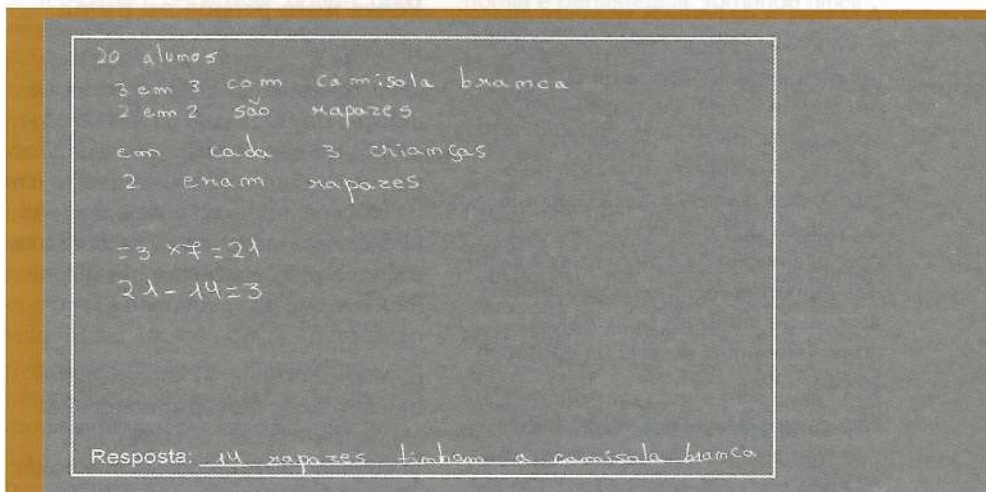 20 alunos
3 em 3 com camisola branca
2 em 2 são rapazes
em cada 3 crianças
2 eram rapazes
=3 x7=21
21-14=3
Resposta: 14 rapazes tinham a camisola branca